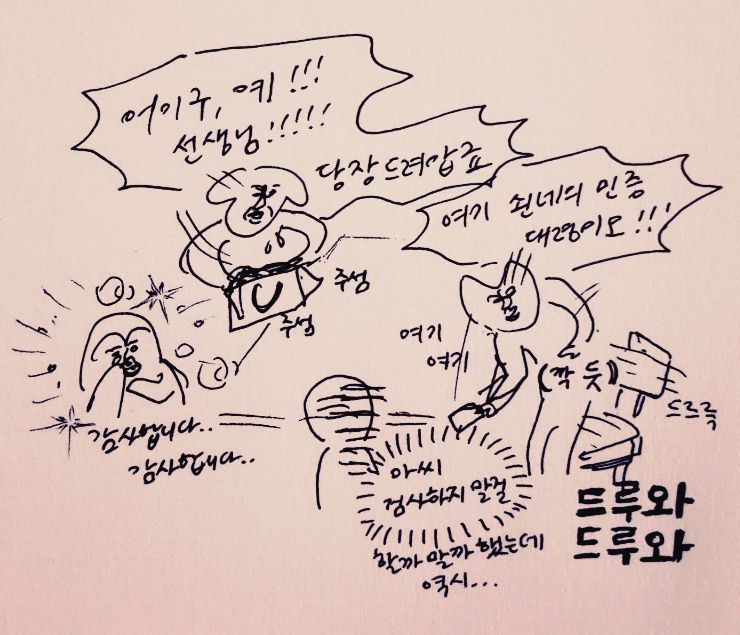 어이구, 예!!!
선생님!!!!!
당장드려얍죠
여기 쇤네의 인증
대령이오!!!
주섬
주섬
여기
여기
(깍듯)
드르륵
감사합니다..
감사합니다..
아씨
검사하지 말걸
할까 말까 했는데
역시...
드루와
드루와